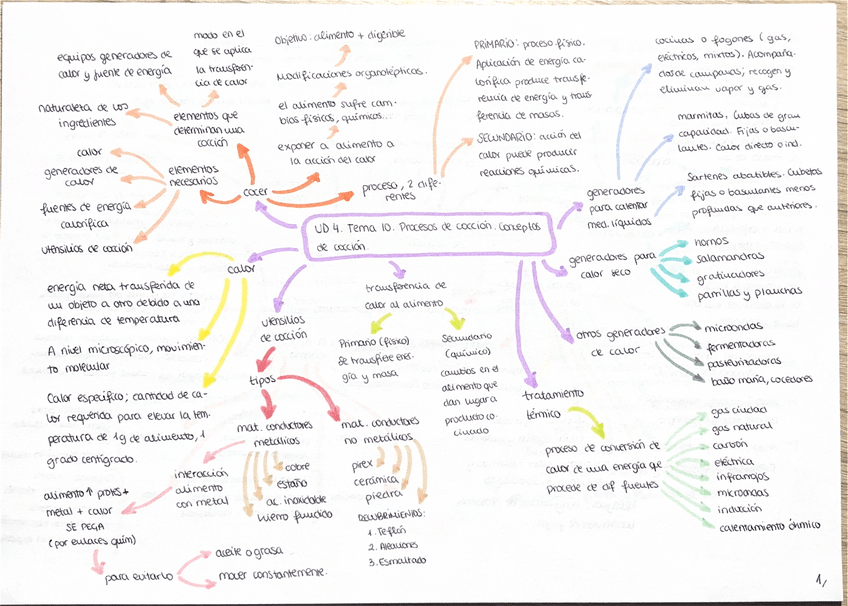 UD 4. Tema 10. Procesos de cocción. Conceptos
de cocción.
cocer
elementos que
determinan una
cocción
modo en el
que se aplica
la transferen-
cia de calor
equipos generadores de
calor y fuente de energía
naturaleza de los
ingredientes
elementos
necesarios
calor
generadores de
calor
fuentes de energía
calorífica
utensilios de cocción
exponer a alimento a
la acción del calor
el alimento sufre cam-
bios físicos, químicos...
Modificaciones organolépticas.
Objetivo: alimento + digerible
proceso, 2 dife-
rentes
PRIMARIO: proceso físico.
Aplicación de energía ca-
lorífica produce transfe-
rencia de energía y trans
ferencia de masas.
SECUNDARIO: acción del
calor puede producir
reacciones químicas.
generadores
para calentar
med. líquidos
cocinas o fogones (gas,
eléctricos, mixtos). Acompaña-
dos de campanas; recogen y
eliminan vapor y gas.
marmitas, cubas de gran
capacidad. Fijas o bascu-
lantes. Calor directo o ind.
Sartenes abatibles. Cubetas
fijas o basculantes menos
profundas que anteriores.
generadores para
calor seco
hornos
salamandras
gratinadores
parrillas y planchas
otros generadores
de calor
microondas
fermentadoras
pasteurizadoras
baño maría, cocedores
tratamiento
térmico
proceso de conversión de
calor de una energía que
procede de dif fuentes
gas ciudad
gas natural
carbón
eléctrica
infrarrojos
microondas
inducción
calentamiento óhmico
transferencia de
calor al alimento
Primario (físico)
Se transfiere ener-
gía y masa
Secundario
(químico)
cambios en el
alimento que
dan lugar a
producto co-
cinado
utensilios
de cocción
tipos
mat. conductores
metálicos
cobre
estaño
ac. inoxidable
hierro fundido
interacción
alimento
con metal
alimento ↑ proteis +
metal + calor
SE PEGA
(por enlaces quím)
para evitarlo
aceite o grasa.
mover constantemente.
mat. conductores
no metálicos
pirex
cerámica
piedra
RECUBRIMIENTOS:
1. Teflón
2. Aleaciones
3. Esmaltado
calor
energía neta transferida de
un objeto a otro debido a una
diferencia de temperatura
A nivel microscópico, movimien-
to molecular
Calor específico; cantidad de ca-
lor requerida para elevar la tem-
peratura de 1g de alimento, 1
grado centígrado.
1,